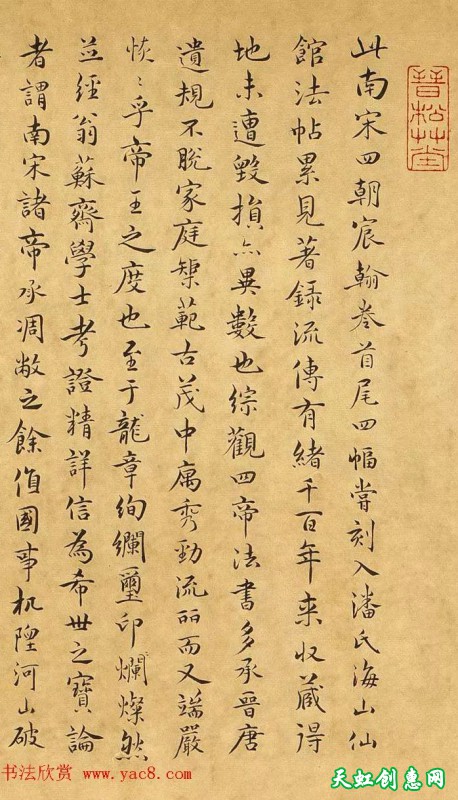 晉松堂
此南宋四朝宸翰卷首尾四幅嘗刻入潘氏海山仙
館法帖累見著錄流傳有緒千百年来收蔵得
地未遭毀損亦異數也綜觀四帝法書多承晉唐
遺規不脫家庭榘範古茂中寓秀勁流丽而又端嚴
恢〻乎帝王之度也至于龍章絢斕璽印爛燦然
並經翁蘇齋學士考證精詳信為希世之寶論
者謂南宋諸帝承凋敝之餘值國事杌隉河山破
书法欣赏 www.yac8.com
天虹创惠网